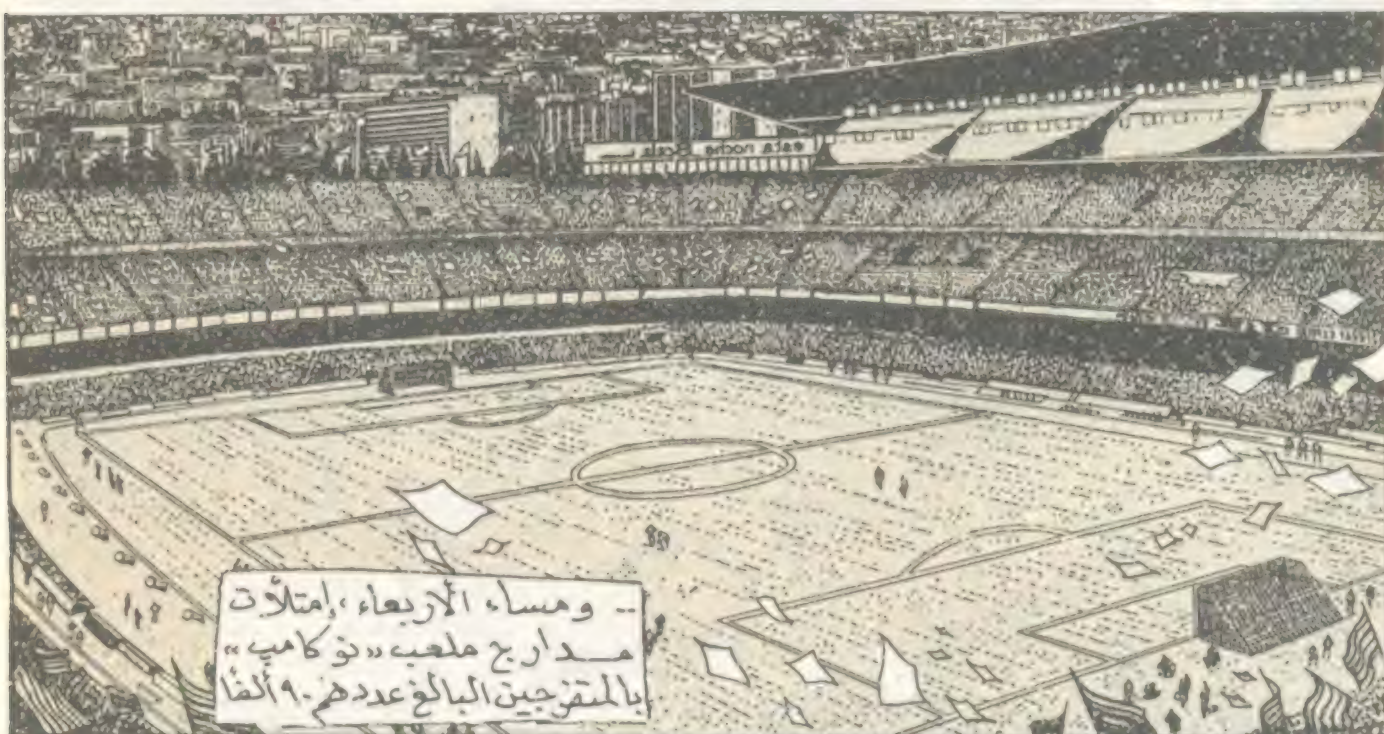 esta noche Scala
-- ومساء الأربعاء، إمتلأت
مدارج ملعب «نو كامب»
بالمتفرجين البالغ عددهم ٩٠ ألفًا